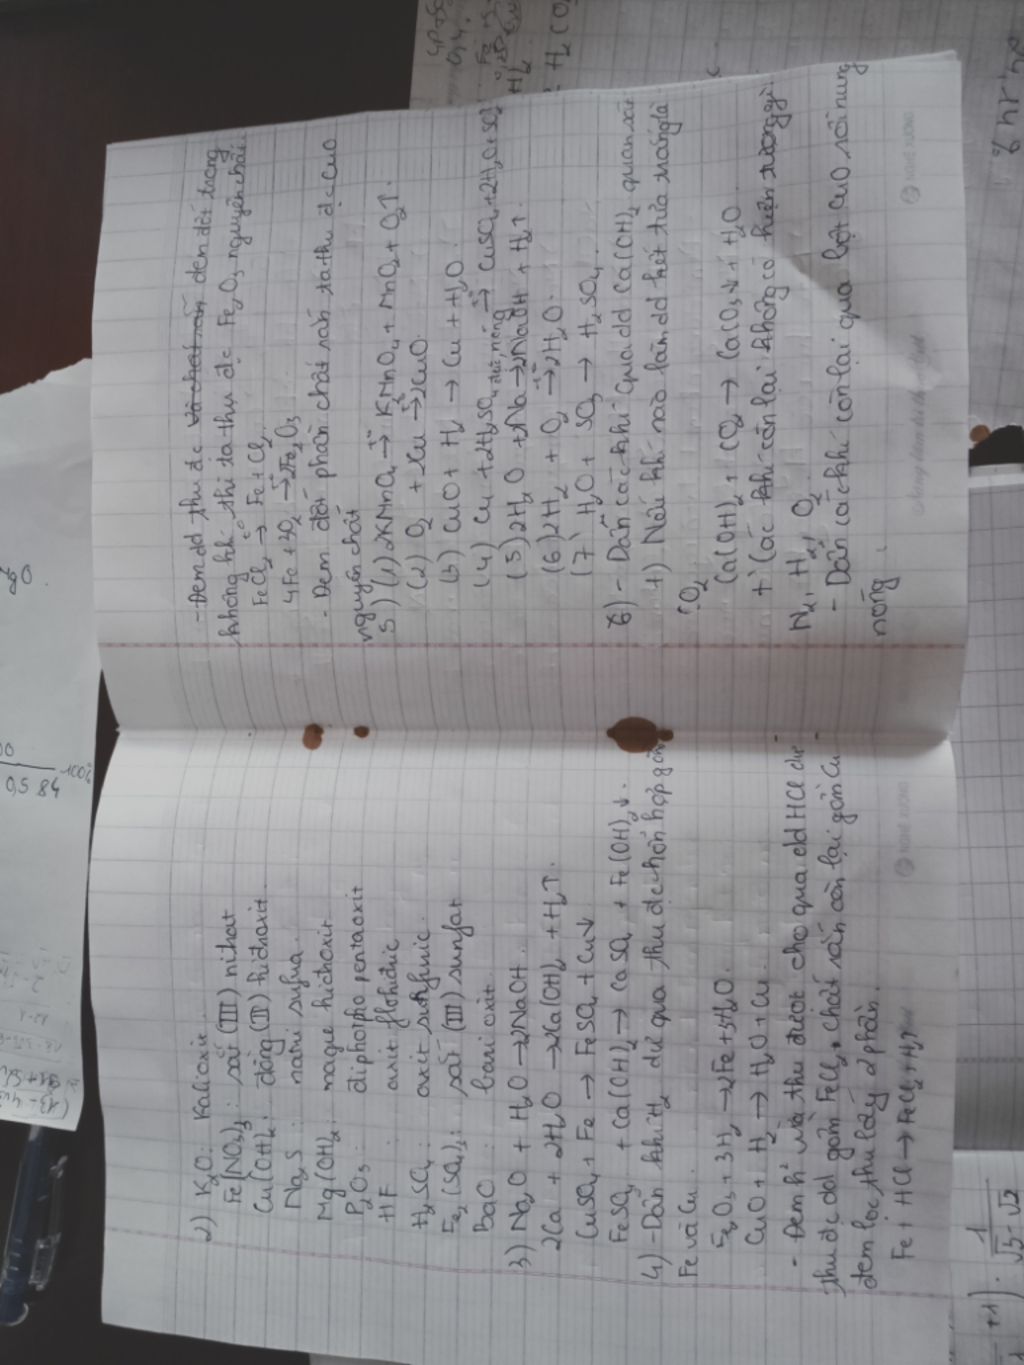 2) K2O: Kali oxit.
Fe(NO3)3: sắt (III) nitrat
Cu(OH)2: đồng (II) hiđroxit.
Na2S: natri sufua.
Mg(OH)2: magie hiđroxit.
P2O5: điphotpho pentaoxit
HF: axit flohiđric
H2SO4: axit sunfuric.
Fe2(SO4)3: sắt (III) sunfat
BaO: bari oxit.
3) Na2O + H2O → 2NaOH.
2Ca + 2H2O → 2Ca(OH)2 + H2↑.
CuSO4 + Fe → FeSO4 + Cu↓
FeSO4 + Ca(OH)2 → CaSO4 + Fe(OH)2↓.
4) - Dẫn khí H2 dư qua thu đc hỗn hợp gồm
Fe và Cu.
Fe2O3 + 3H2 → 2Fe + 3H2O.
CuO + H2 → H2O + Cu.
- Đem h² vừa thu được cho qua dd HCl dư
thu đc dd gồm FeCl2, chất rắn còn lại gồm Cu
đem lọc thu lấy 2 phần.
Fe + HCl → FeCl2 + H2↑
- Đem dd thu đc đem đốt trong
không khí thì ta thu đc Fe2O3 nguyên chất.
FeCl2 → Fe + Cl2
4Fe + 3O2 → 2Fe2O3
- Đem đốt phần chất rắn ta thu đc CuO
nguyên chất
5) (1) 2KMnO4 → K2MnO4 + MnO2 + O2↑.
(2) O2 + 2Cu → 2CuO.
(3) CuO + H2 → Cu + H2O.
(4) Cu + 2H2SO4 đặc, nóng → CuSO4 + 2H2O + SO2
(5) 2H2O + 2Na → 2NaOH + H2↑.
(6) 2H2 + O2 → 2H2O.
(7) H2O + SO3 → H2SO4.
6) - Dẫn các khí qua dd Ca(OH)2 quan sát
+) Nếu khí nào làm dd kết tủa trắng là
CO2
Ca(OH)2 + CO2 → CaCO3↓ + H2O.
+ Các khí còn lại không có hiện tượng gì:
N2, H2, O2.
- Dẫn các khí còn lại qua bột CuO rồi nung
nóng.